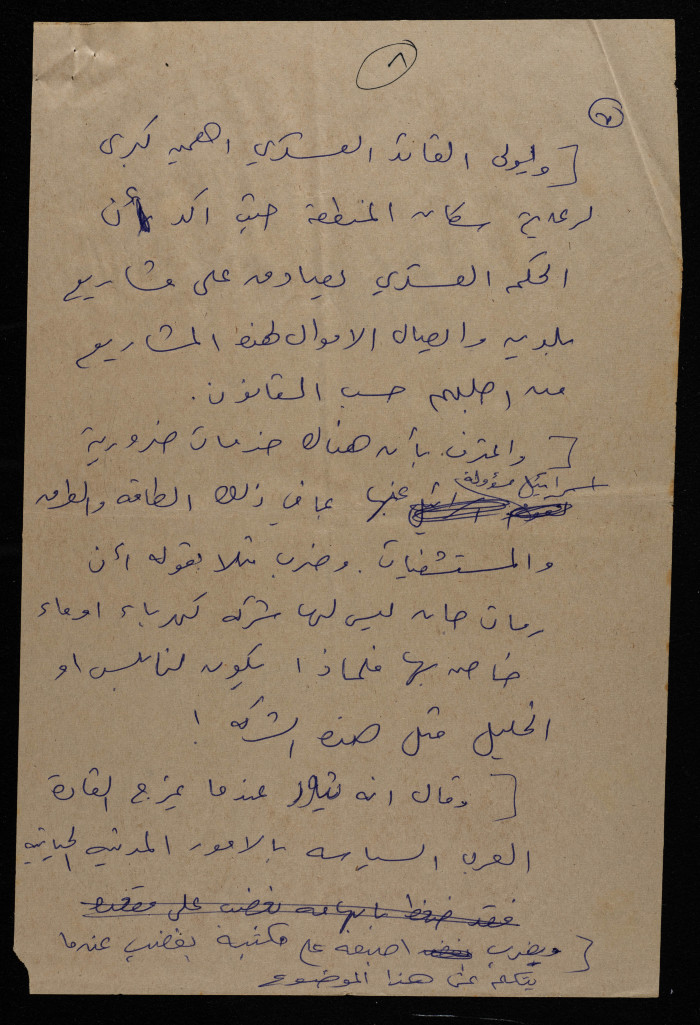 ٨
٧
[ ويولي القائد العسكري اهميه كبرى
لرعاية سكان المنطقة حيث اكد أن
الحكم العسكري يصادق على مشاريع
بلديه وايصال الاموال لهذه المشاريع
من اجلهم حسب القانون.
[ واعترف بأن هناك خدمات ضرورية
اسرائيل مسؤولة
عنها بما في ذلك الطاقه والطرق
والمستشفيات. وضرب مثلا بقوله أن
رمات جان ليس لها شركه كهرباء او ماء
خاصه بها فلماذا يكون لنابلس او
الخليل مثل هذه الشركه !
[ وقال انه عندما يمزج القادة
العرب السياسه بالامور المدنيه الحياتيه
فقد ضغط بابهامه بغضب على مقعده
[ ويضرب اصبعه على مكتبة بغضب عندما
يتكلم عن هذا الموضوع